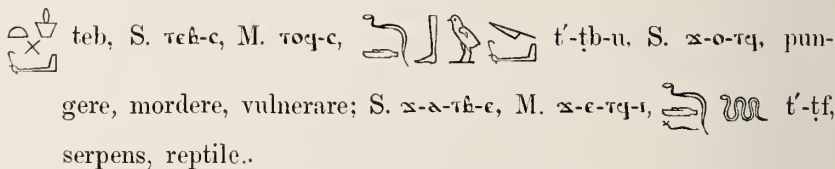 teb, S. ⲧⲉⲃ-ⲥ, M. ⲧⲟϥ-ⲥ, t′-ṭb-u, S. ϫ-ⲟ-ⲧϥ, pun-
gere, mordere, vulnerare; S. ϫ-ⲁ-ⲧⲃ-ⲉ, M. ϫ-ⲉ-ⲧϥ-ⲓ, t′-ṭf,
serpens, reptile..